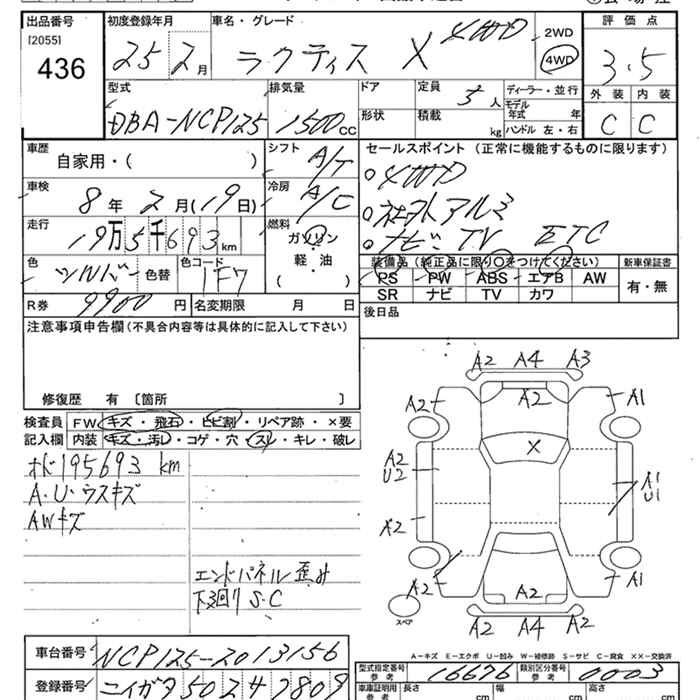 出品番号 初度登録年月 車名・グレード 評価点
[2055]
436 25年2月 ラクティス X 4WD 2WD 4WD 3.5
外装 内装
C C
型式 排気量 ドア 定員 ディーラー・並行
DBA-NCP125 1500cc 5人 モデル年式 年
形状 積載 kg ハンドル 左・右
車歴 シフト セールスポイント (正常に機能するものに限ります)
自家用・( ) A/T 4WD
車検 冷房 社外アルミ
8年2月(19日) A/C ナビ TV ETC
走行 燃料
19万5千693km ガソリン・軽・油 ( )
色 色替 色コード 装備品 (純正品に限り○をつけてください) 新車保証書
シルバー 1F7 PS PW ABS エアB AW 有・無
SR ナビ TV カワ
R券 9900円 名変期限 月 日 後日品
注意事項申告欄(不具合内容等は具体的に記入して下さい)
修復歴 有 〔箇所 〕
検査員 FW キズ・飛石・ヒビ割・リペア跡・×要
記入欄 内装 キズ・汚レ・コゲ・穴・スレ・キレ・破レ
オド195693 km
A・U・ウスキズ
AWキズ
エンドパネル歪み
下廻りS.C
A2 A4 A3
A2 A2 A1
X
A2
U2
A1
U1
A2
A2 A2 A1
スペア
A2 A4 A2
A-キズ E-エクボ U-凹み W-補修跡 S-サビ C-腐食 XX-交換済
車台番号 NCP125-2013156
型式指定番号 参考 16676 類別区分番号 参考 0003
登録番号 ニイガタ502 4 7809
車庫証明用 参考 長さ cm 幅 cm 高さ cm